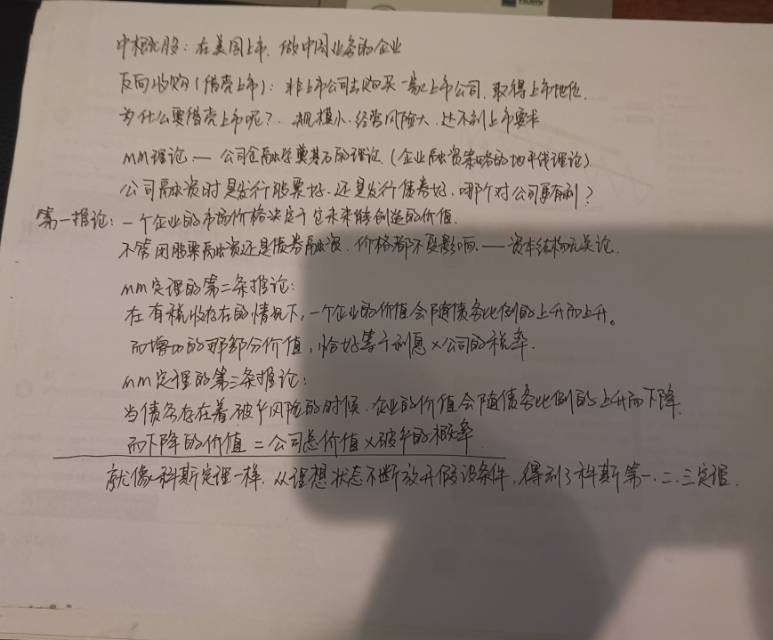 中概股：在美国上市、做中国业务的企业
反向收购(借壳上市)：非上市公司去购买一家上市公司，取得上市地位.
为什么要借壳上市呢？规模小、经营风险大、达不到上市要求
MM理论 — 公司金融学奠基石的理论 (企业融资策略的地平线理论)
公司融资时是发行股票好、还是发行债券好，哪个对公司更有利？
第一推论：一个企业的市场价格决定于它未来能创造的价值.
不管用股票融资还是债券融资、价格都不受影响. — 资本结构无关论.
MM定理的第二条推论：
在有税收存在的情况下，一个企业的价值会随债务比例的上升而上升。
而增加的那部分价值，恰好等于利息×公司的税率.
MM定理的第三条推论：
当债务存在着破产风险的时候，企业的价值会随债务比例的上升而下降.
而下降的价值＝公司总价值×破产的概率
就像科斯定理一样，从理想状态不断放开假设条件，得到了科斯第一.二.三定理.